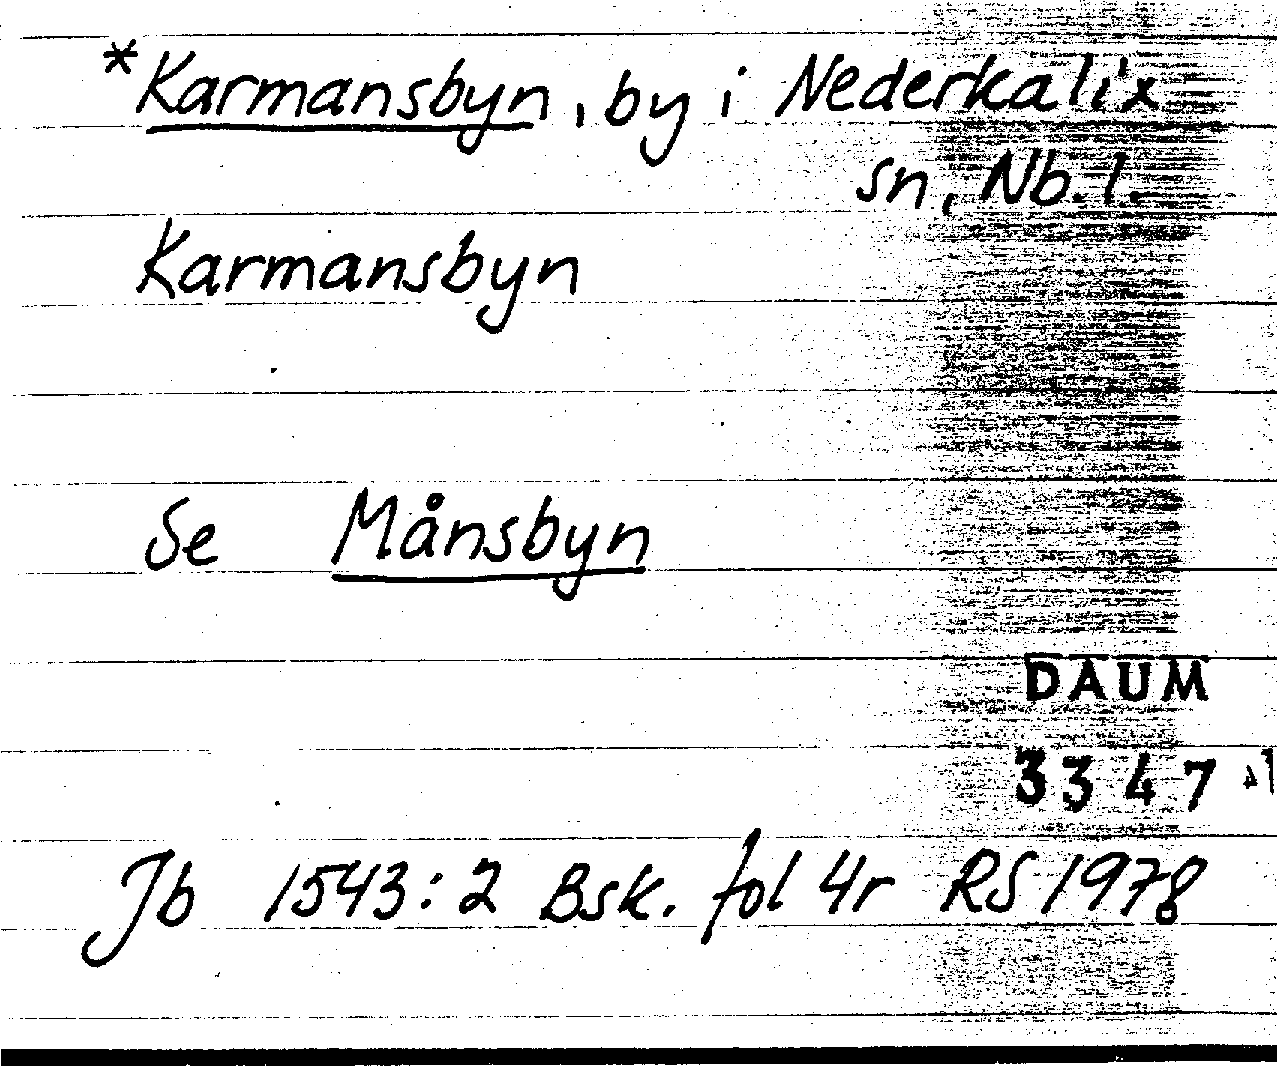 *Karmansbyn, by i Nederkalix
sn, Nb.l.
Karmansbyn
Se Månsbyn
DAUM
3347
Jb 1543:2 Bsk. fol 4r RS 1978